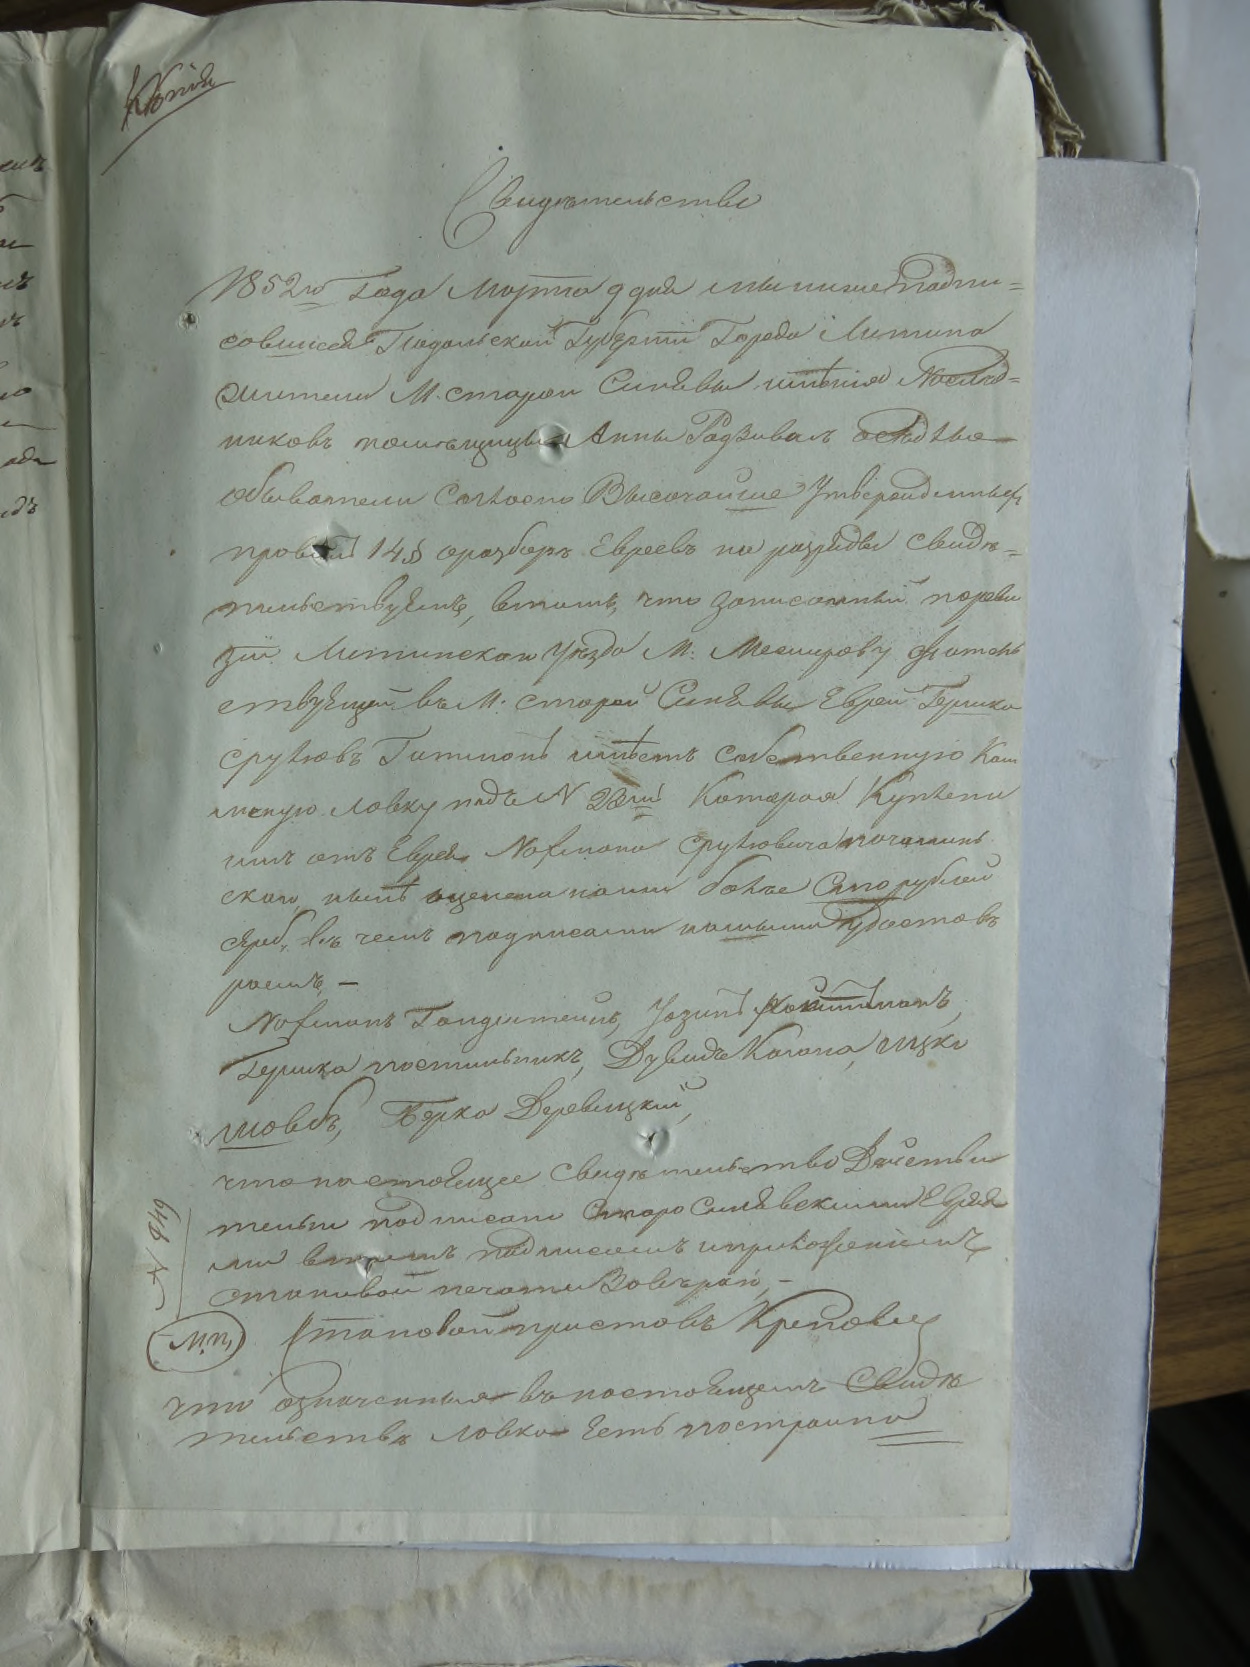 Копія
Свидѣтельство
1852го Года Марта 9 дня мы ниже Подпи=
савшиеся Подольской Губерніи Города Литина
жители М. старой Синявы имѣнія Наслѣд=
никовъ помѣщицы Анны Радзивилъ осѣдлые
обыватели Согласно Высочайше Утвержденныхъ
правилъ 14 § о разборѣ Евреевъ на разряды Свидѣ=
тельствуемъ, в томъ, что записанный по реви
зіи Литинскаго Уѣзда М:
ствующій въ М. старой Синявы Еврей Гершко
Срулювъ Гитманъ имѣетъ Собственную Кам
менную лавку подъ N 23мъ Которая Куплена
имъ отъ Еврея Нафмана Срулювича
ской, нынѣ оценена нами более Сто рублей
сереб. въ чемъ подписами нашими Удостовѣ
раемъ, —
Нафманъ Гольдштейнъ, Уозипъ
Гершко постильникъ, Дувидъ Когана, Ицко
Берко Деревицкій,
что настоящее свидѣтельство Дѣйстви
тельно подписано Старо Синявскими Еврея
ми в томъ подписомъ и приложеніемъ
становой печати Завѣряю, —
N 949
М.П. Становой приставъ
что означенная въ настоящемъ Свидѣ
тельствѣ лавка есть построина